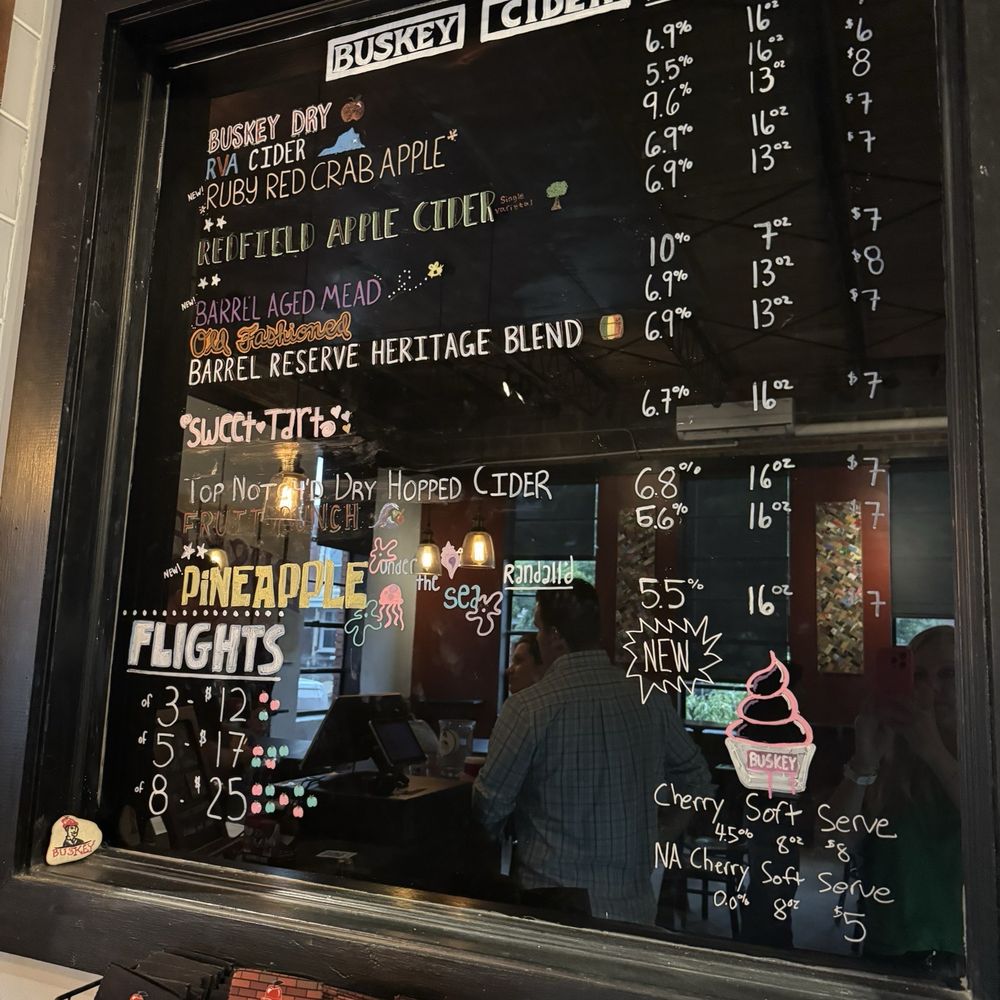 BUSKEY CIDER
BUSKEY DRY
RVA CIDER
NEW! *RUBY RED CRAB APPLE*
REDFIELD APPLE CIDER Single varietal
NEW! BARREL AGED MEAD
Old Fashioned
BARREL RESERVE HERITAGE BLEND
SWEET•TART
TOP NOTCH'D DRY HOPPED CIDER
FRUIT PUNCH
NEW! PINEAPPLE under the sea Randall'd
6.9% 16oz $7
5.5% 16oz $6
9.6% 13oz $8
6.9% 16oz $7
6.9% 13oz $7
10% 7oz $7
6.9% 13oz $8
6.9% 13oz $7
6.7% 16oz $7
6.8% 16oz $7
5.6% 16oz $7
5.5% 16oz $7
FLIGHTS
of 3 - $12
of 5 - $17
of 8 - $25
NEW
BUSKEY
Cherry Soft Serve
4.5% 8oz $8
NA Cherry Soft Serve
0.0% 8oz $5
BUSKEY